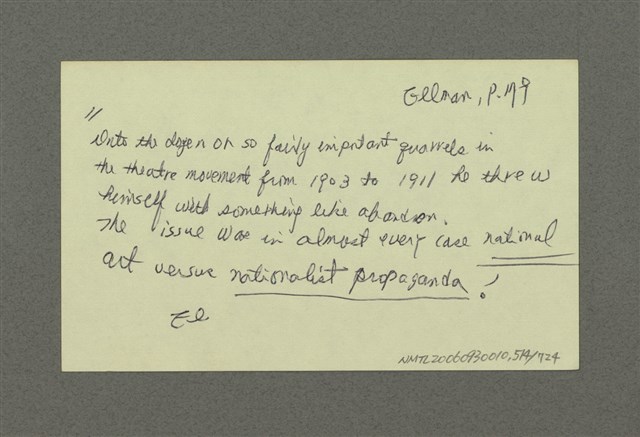 Ellman, P. 179
"
Into the dozen or so fairly important quarrels in
the theatre movement from 1903 to 1911 he threw
himself with something like abandon.
The issue was in almost every case national
art versus nationalist propaganda!
El
NMTL20060930010,514/724